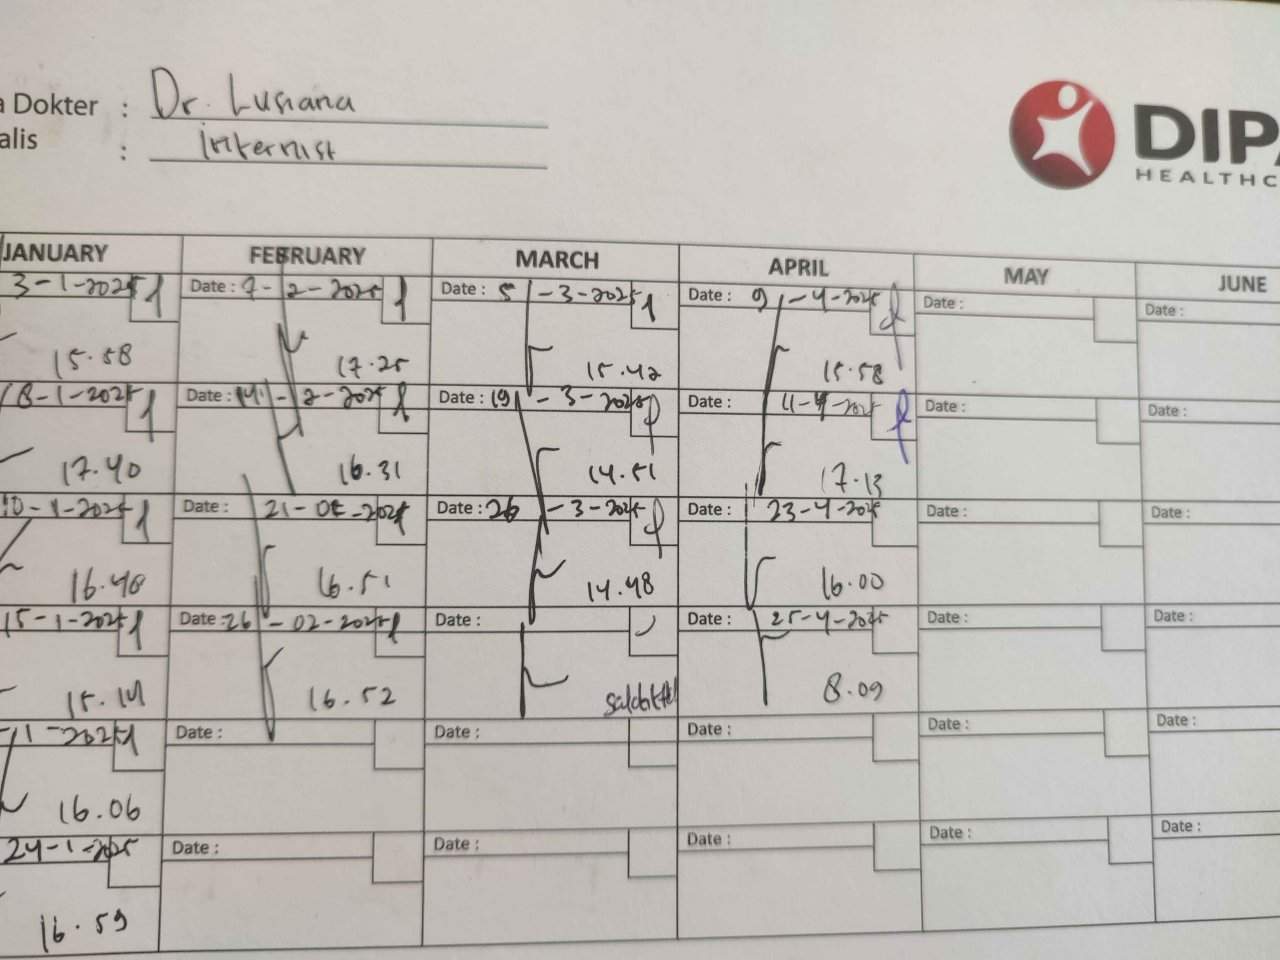 a Dokter : Dr. Lusiana
alis : Internist
DIPA
HEALTHC
JANUARY FEBRUARY MARCH APRIL MAY JUNE
3-1-2025 Date : 7-2-2025 Date : 5-3-2025 Date : 9-4-2025 Date : Date :
15.58 17.25 15.42 15.58
8-1-2025 Date : 14-2-2025 Date : 19-3-2025 Date : 11-4-2025 Date : Date :
17.40 16.31 14.51 17.13
10-1-2025 Date : 21-02-2025 Date : 26-3-2025 Date : 23-4-2025 Date : Date :
16.48 16.51 14.48 16.00
15-1-2025 Date : 26-02-2025 Date : Date : 25-4-2025 Date : Date :
15.14 16.52 8.09
-1-2025 Date : Date : Date : Date : Date :
16.06
24-1-2025 Date : Date : Date : Date : Date :
16.59